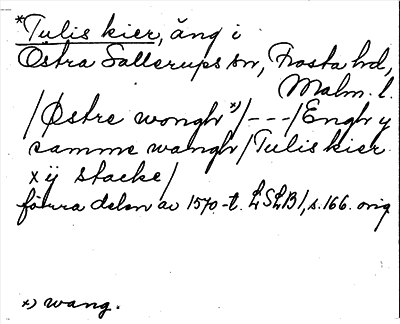 *Tulis kier, äng i
Östra Sallerups sn, Frosta hd,
Malm. l.
/Østre wongh *)/---/Engh y
samme wangh/Tulis kier
x ij stacke/
förra delen av 1570-t. LSLB1, s. 166. orig
*) wang.